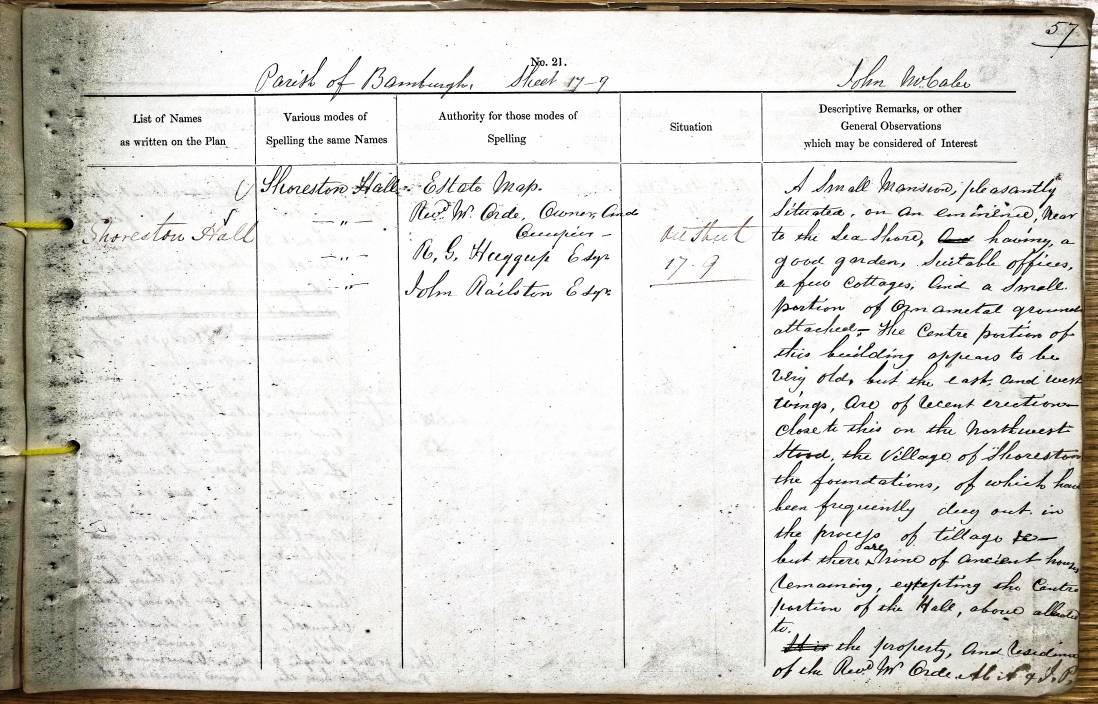 57
No. 21.
Parish of Bamburgh. Sheet 17-9 John McCabe
List of Names
as written on the Plan
Various modes of
Spelling the same Names
Authority for those modes of
Spelling
Situation
Descriptive Remarks, or other
General Observations
which may be considered of Interest
Shoreston Hall
Shoreston Hall
— " —
— " —
— "
Estate Map.
Revd. W. Orde, Owner, and
Occupier —
R. G. Huggup Esqr
John Railston Esqr.
Sheet
17-9
A Small Mansion, pleasantly
Situated, on an eminence, Near
to the Sea Shore, and having, a
good garden, Suitable offices,
a few Cottages, and a Small
portion of Ornametal ground
attached, — The Centre portion of
this building appears to be
very old, but the east, and west
wings, are of recent erection
close to this on the Northwest
Stood, the Village of Shoreston
the foundations, of which have
been frequently dug out in
the process of tillage
but there are None of ancient houses
remaining, excepting the Centre
portion of the Hall, above alluded
to.
It is the property, and residence
of the Revd. W Orde M.A. & J.P.